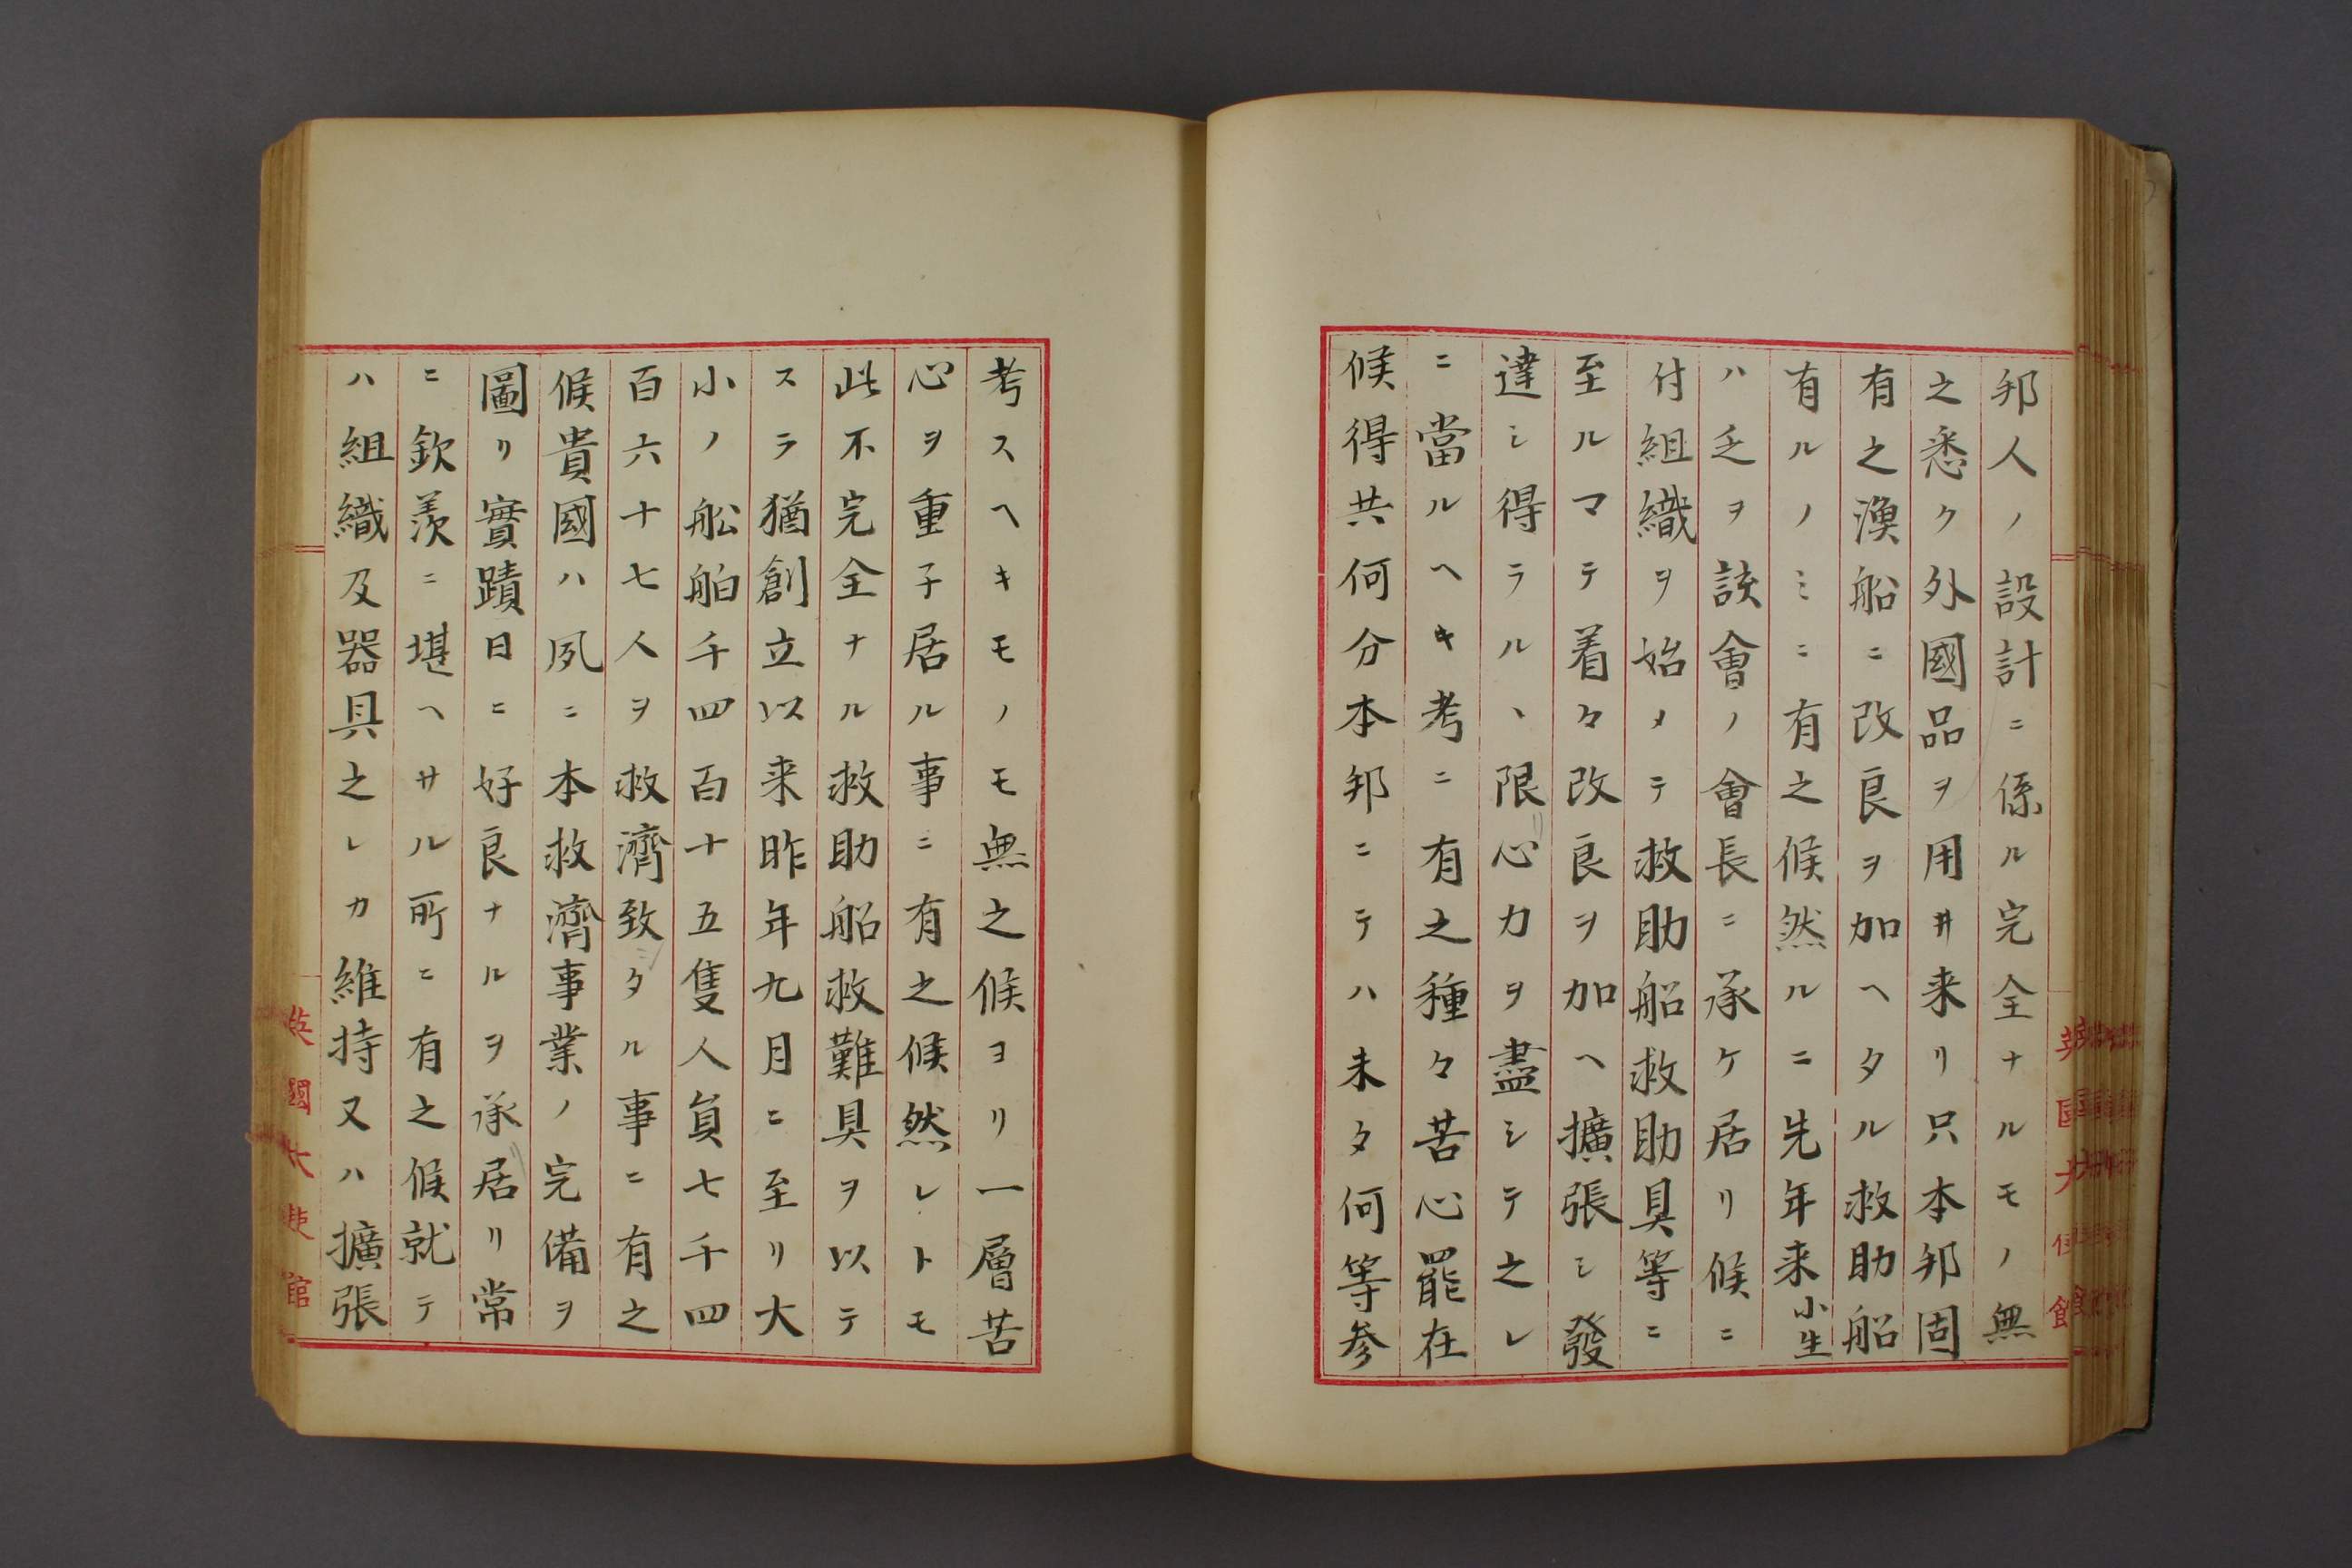 邦人ノ設計ニ係ル完全ナルモノ無
之悉ク外國品ヲ用井来リ只本邦固
有之漁船ニ改良ヲ加ヘタル救助船
有ルノミニ有之候然ルニ先年来小生
ハ乏ヲ該會ノ會長ニ承ケ居リ候ニ
付組織ヲ始メテ救助船救助具等ニ
至ルマテ着々改良ヲ加ヘ擴張シ發
達シ得ラルヽ限心力ヲ盡シテ之レ
ニ當ルヘキ考ニ有之種々苦心罷在
候得共何分本邦ニテハ未タ何等参
考スヘキモノモ無之候ヨリ一層苦
心ヲ重子居ル事ニ有之候然レトモ
此不完全ナル救助船救難具ヲ以テ
スラ猶創立以来昨年九月ニ至リ大
小ノ舩舶千四百十五隻人員七千四
百六十七人ヲ救濟致タル事ニ有之
候貴國ハ夙ニ本救濟事業ノ完備ヲ
圖リ實蹟日ニ好良ナルヲ承居リ常
ニ欽羨ニ堪ヘサル所ニ有之候就テ
ハ組織及器具之レカ維持又ハ擴張
英國大使館
英國大使館